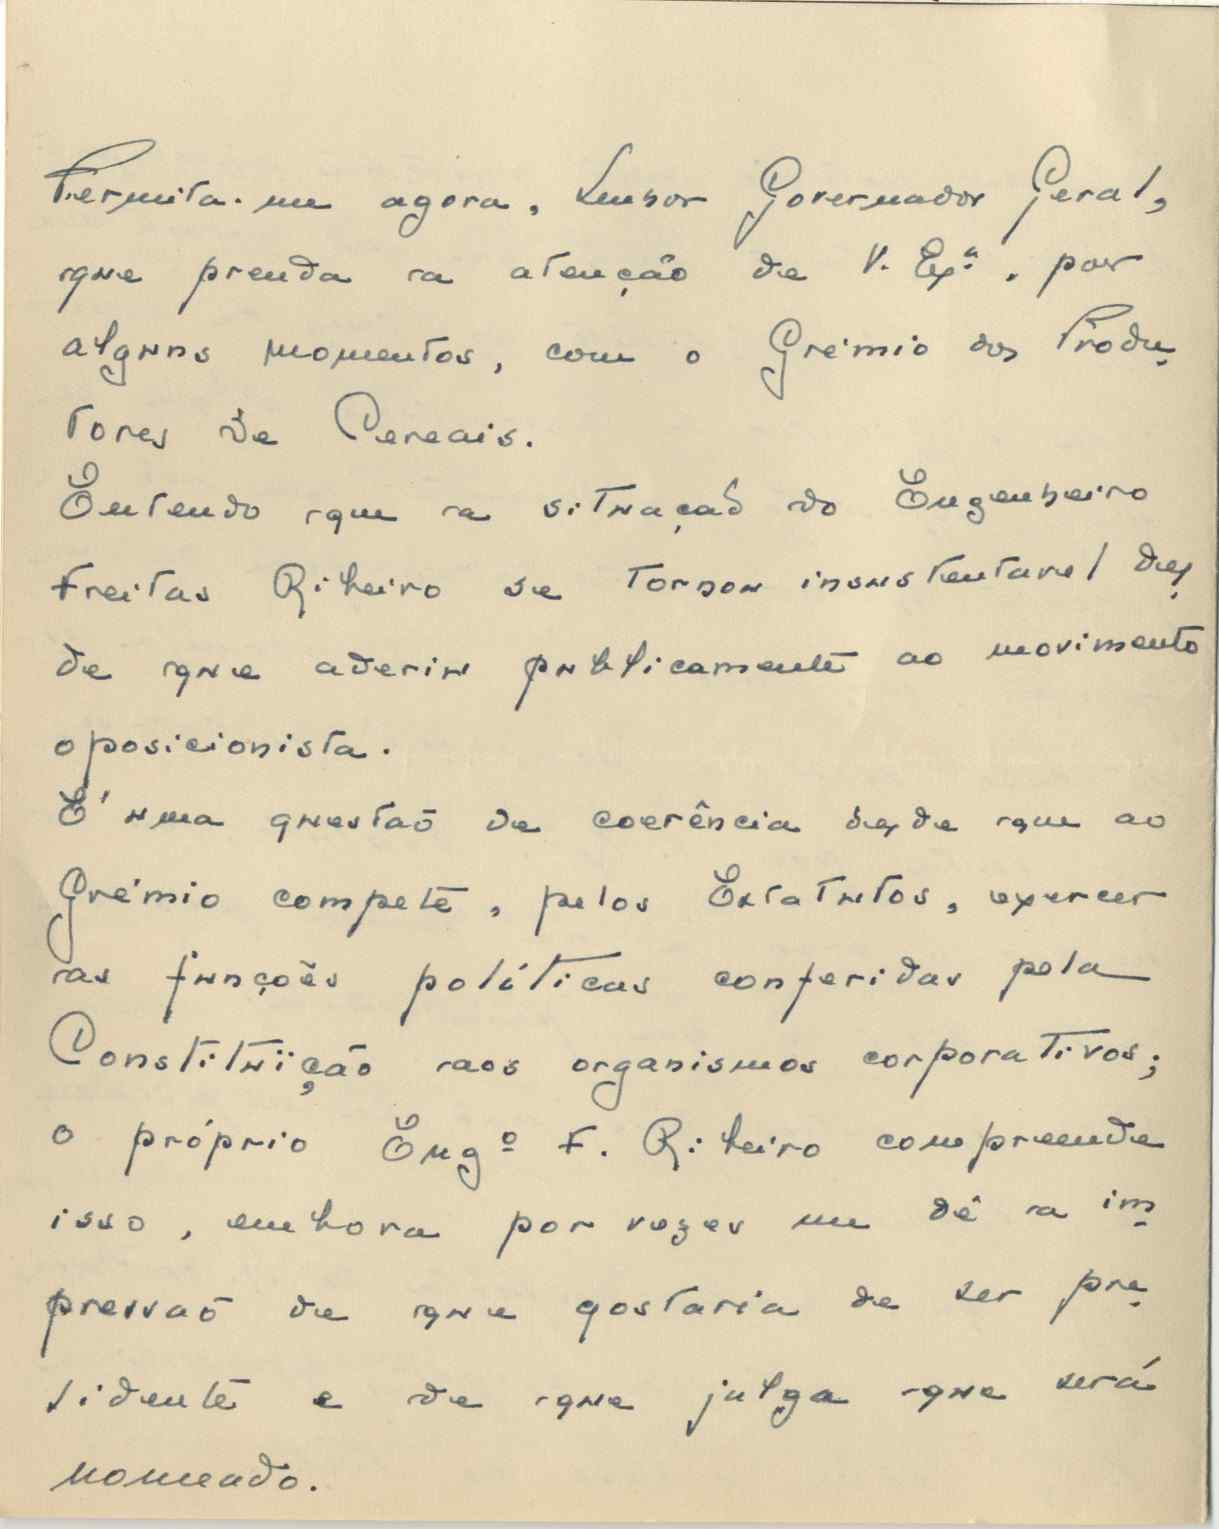 Permita-me agora, Senhor Governador Geral,
que prenda a atenção de V. Exª., por
alguns momentos, com o Grémio dos Produ-
tores de Cereais.
Entendo que a situação do Engenheiro
Freitas Ribeiro se tornou insustentavel des-
de que aderiu publicamente ao movimento
oposicionista.
É uma questão de coerência desde que ao
Grémio compete, pelos Estatutos, exercer
as funções políticas conferidas pela
Constituïção aos organismos corporativos;
o próprio Engº F. Ribeiro compreende
isso, embora por vezes me dê a im-
pressão de que gostaria de ser pre-
sidente e de que julga que será
nomeado.